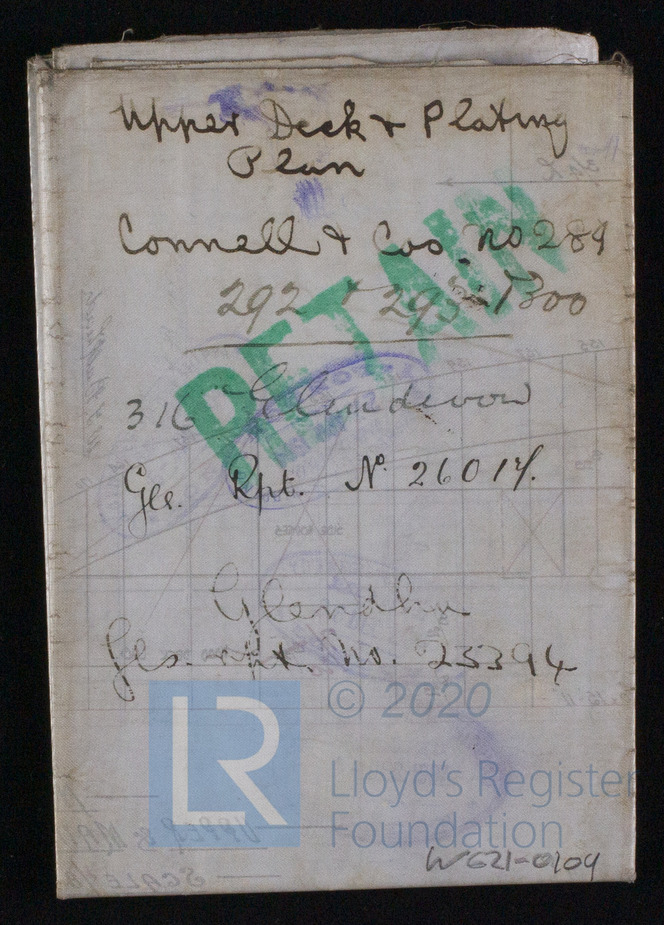 Upper Deck & Plating
Plan
Connell & Cos. no 289
292 & 293
RETAIN
316 "Glendevon"
Gls. Rpt. No. 26017.
Glendhu
Gls. rpt. No. 23394
LR
© 2020
Lloyd's Register
Foundation
W621-0109